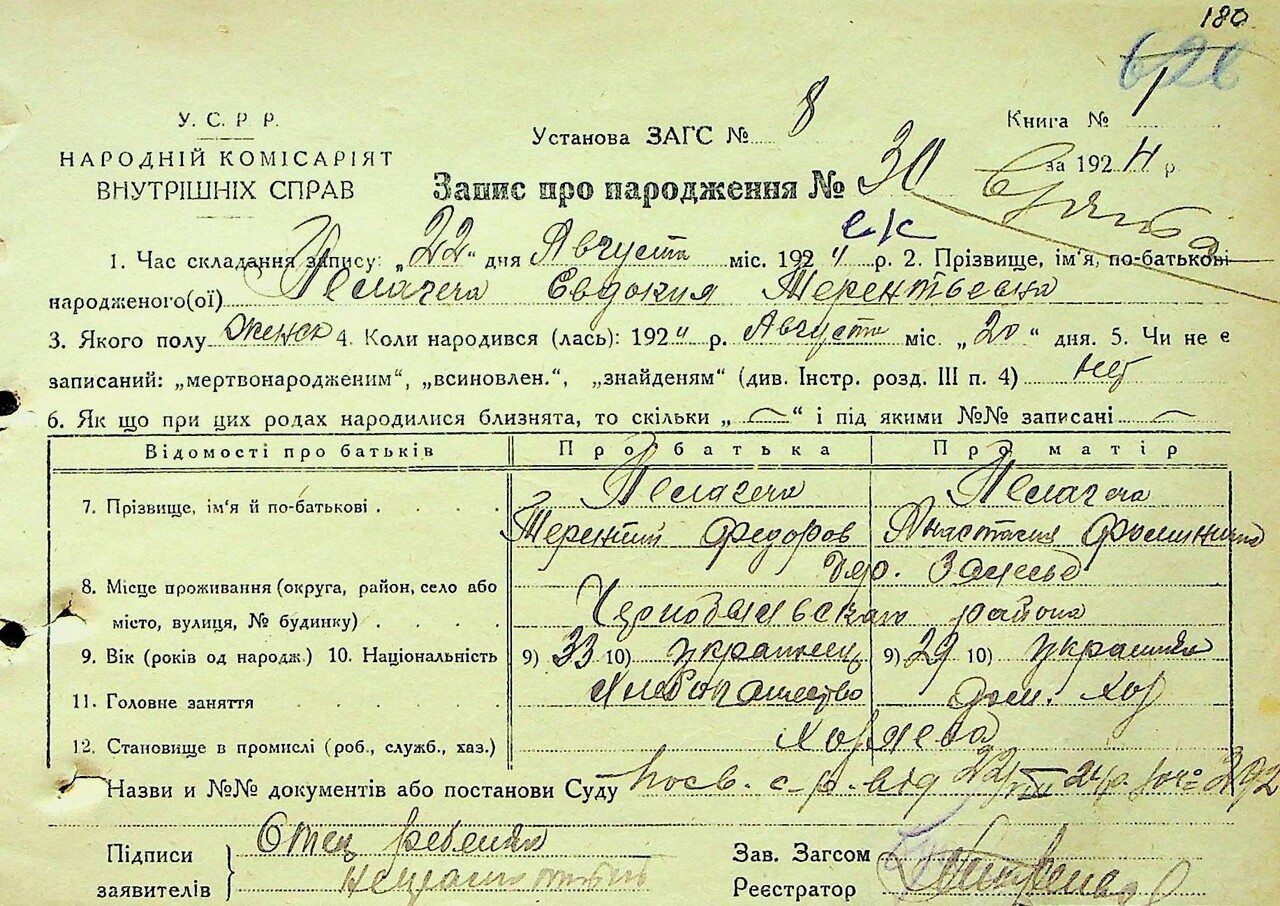 180
626
У. С. Р Р.
НАРОДНІЙ КОМІСАРІЯТ
ВНУТРІШНІХ СПРАВ
Установа ЗАГС № 8
Книга № 1
за 1924 р
Запис про народження № 30
1. Час складання запису: „22" дня Августа міс. 1924 р. 2. Прізвище, ім'я, по-батькові
народженого(ої) Евдокия Терентьевна
3. Якого полу женск 4. Коли народився (лась): 1924 р. Августа міс. „20" дня. 5. Чи не є
записаний: „мертвонародженим", „всиновлен.", „знайденям" (див. Інстр. розд. III п. 4) нет
6. Як що при цих родах народилися близнята, то скільки „—" і під якими №№ записані —
Відомості про батьків Про батька Про матір
7. Прізвище, ім'я й по-батькові
Терентий Федоров Анастасия
8. Місце проживання (округа, район, село або
місто, вулиця, № будинку) Чернобыльскаго района
9. Вік (років од народж.) 10. Національність 9) 33 10) украинец 9) 29 10) украинка
11. Головне заняття Хлебопашество дом. хоз
12. Становище в промислі (роб., служб., хаз.) Хозяева
Назви и №№ документів або постанови Суду посв. с-р. від 22/VIII 24 р. за № 392
Підписи
заявителів
Отец ребенка
неграмотный
Зав. Загсом
Реєстратор